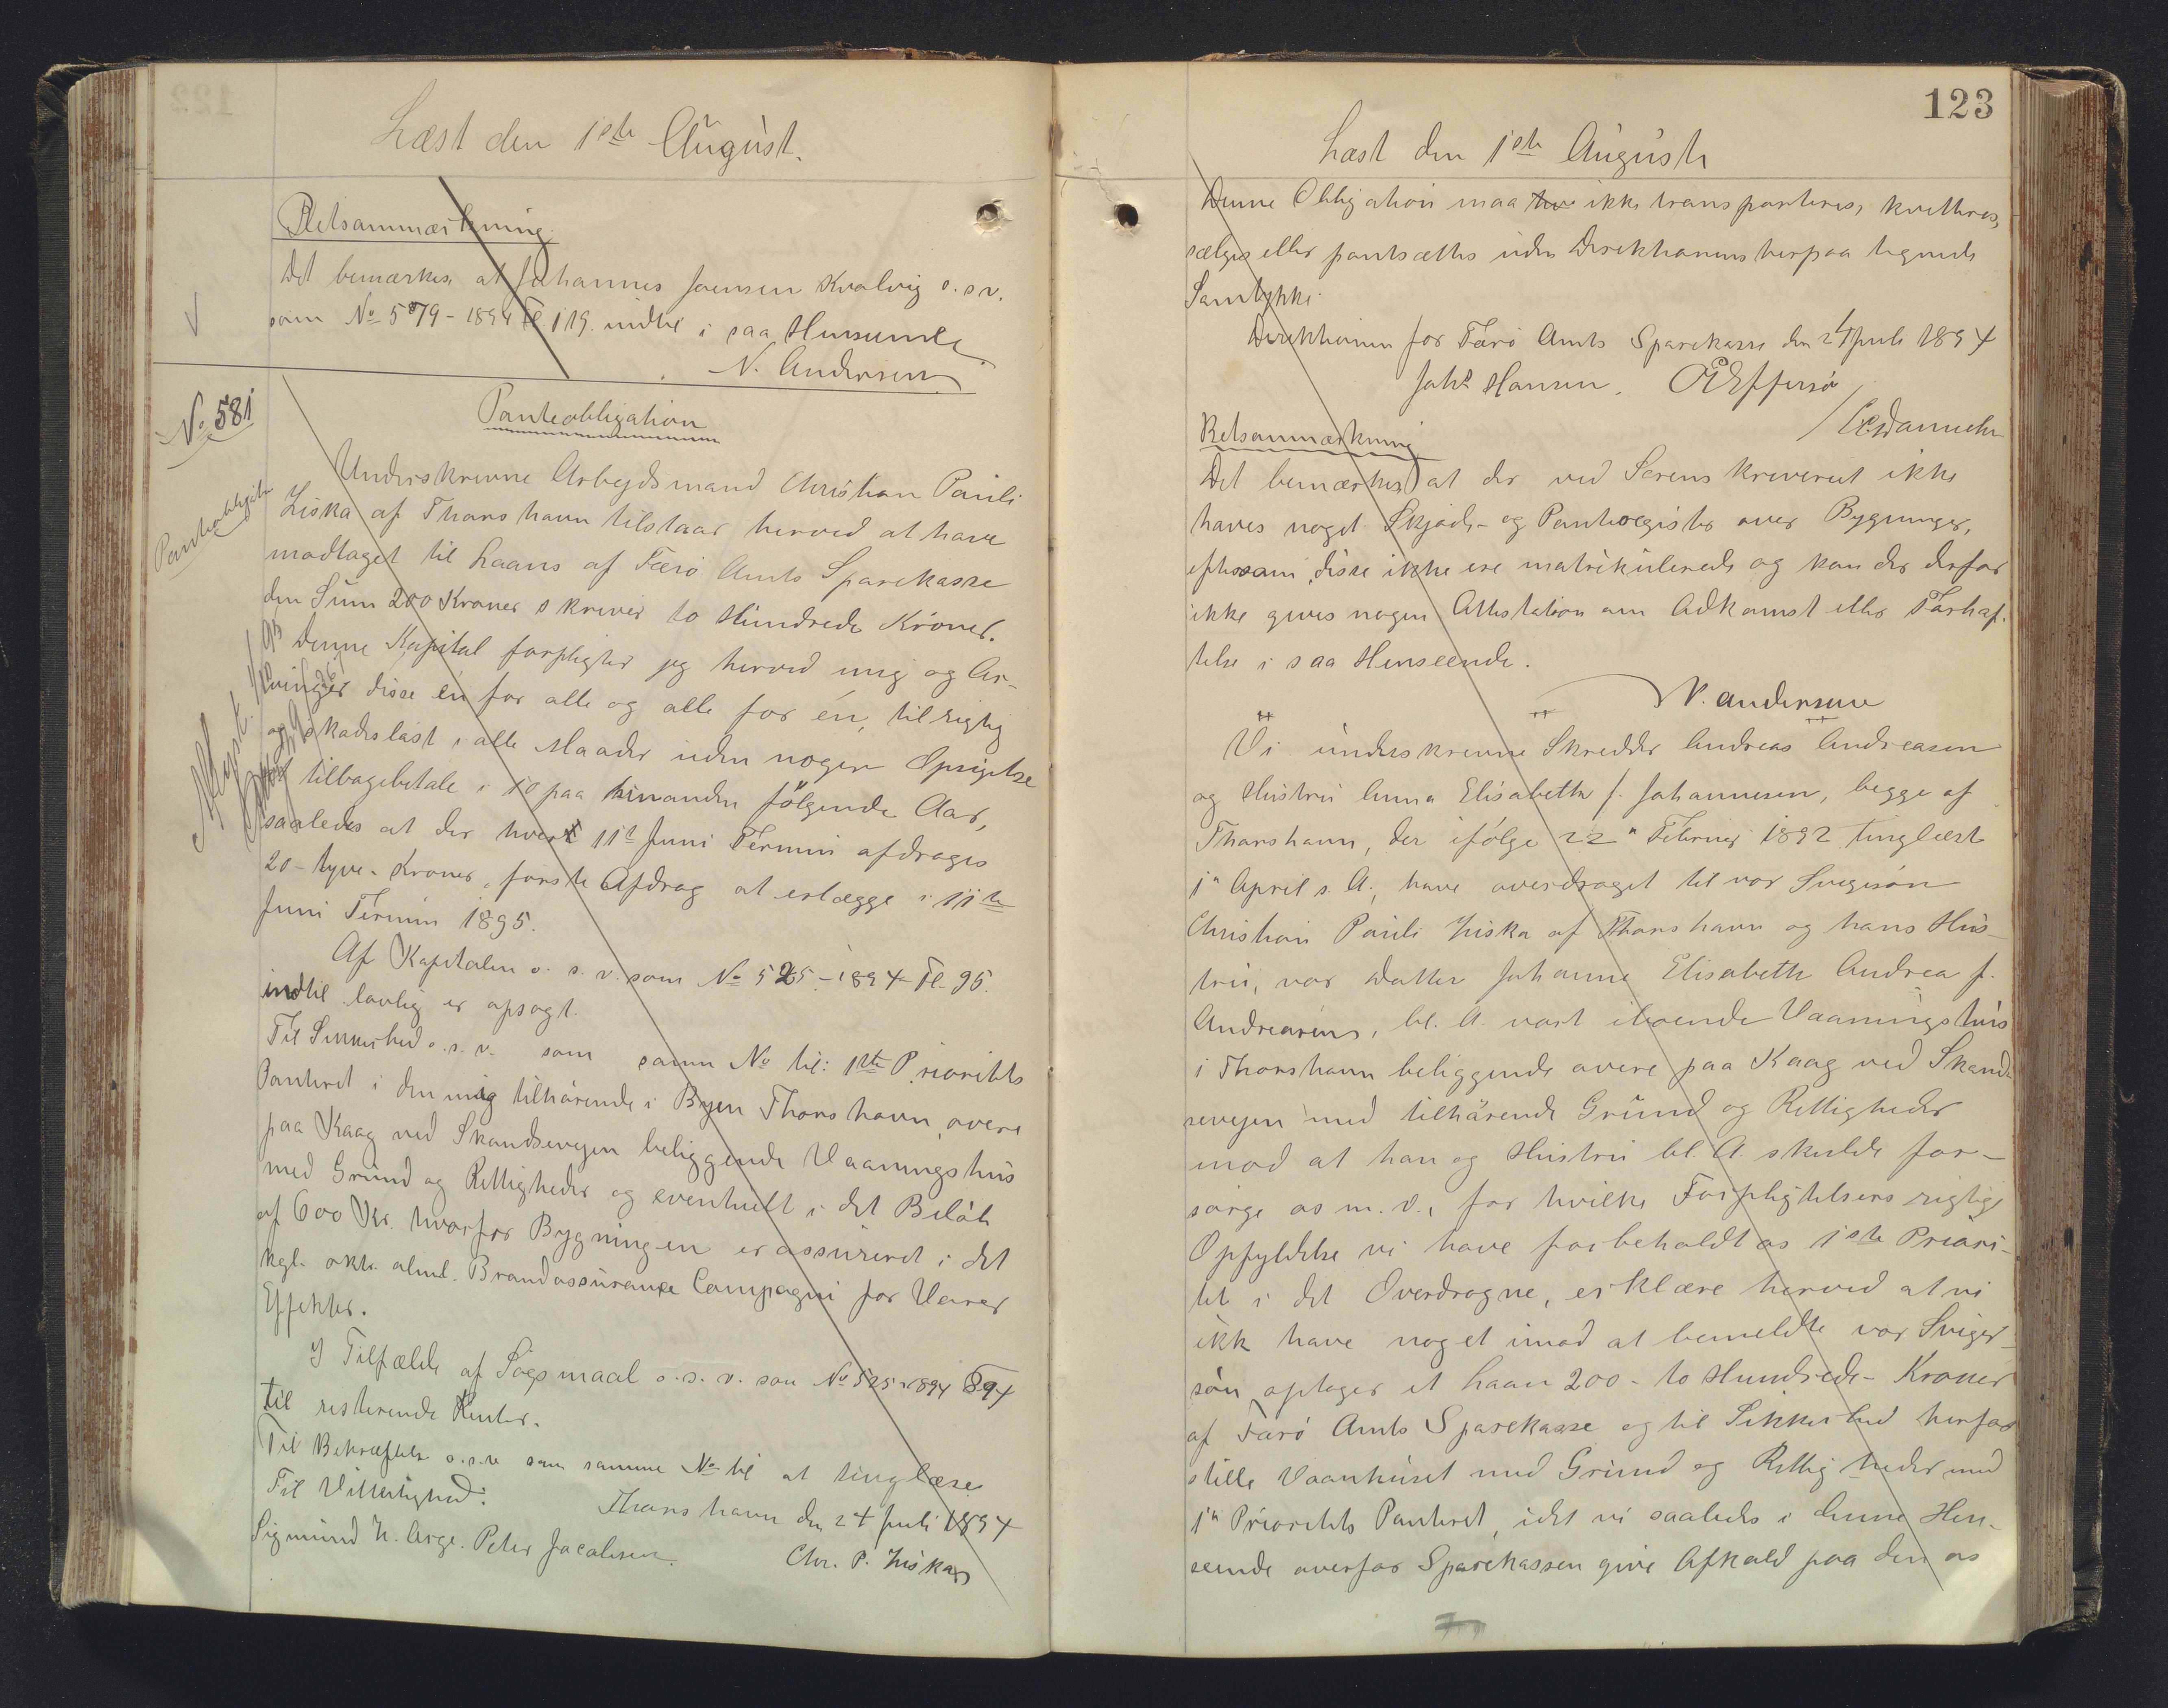 Læst den 1ste August.
Retsanmærkning
Det bemærkes at Johannes Joensen Kvalvig o.s.v.
som No 579-1894 Fl 119. indtil i saa Henseende
N. Andersen
No 581
Panteobligation
Panteobligation
Underskrevne Arbejdsmand Christian Pauli
Ziska af Thorshavn tilstaar herved at have
modtaget til Laans af Færø Amts Sparekasse
den Sum 200 Kroner skriver to Hundrede Kroner.
Denne Kapital forpligter jeg herved mig og Ar-
vinger disse en for alle og alle for én, til rigtig
og skadesløst i alle Maader uden nogen Opsigelse
tilbagebetale i 10 paa hinanden følgende Aar,
saaledes at der hvert 11te Juni Termin afdrages
20 - tyve - Kroner, første Afdrag at erlægge i 11te
Juni Termin 1895.
Af Kapitalen o. s. v. som No 525 - 1894 Fl. 95.
indtil lovlig er opsagt.
Til Sikkerhed o. s. v. som samme No til: 1ste Prioritets
Panteret i den mig tilhørende i Byen Thorshavn, overe
paa Kaag ved Skandsevejen beliggende Vaaningshus
med Grund og Rettigheder og eventuelt i det Beløb
af 600 Kr. hvorfor Bygningen er assureret i det
kgl. oktr. almd. Brandassurance Compagni for Varer
Effekter.
I Tilfælde af Søgsmaal o. s. v. som No 525 1894
til resterende Renter.
Til Bekræftelse o.s.v. som samme No til at tinglæse
Thorshavn den 24 Juli 1894
Til Vitterlighed:
Chr. P. Ziska
Sigmund N. Arge. Peter Jacobsen.
123
Læst den 1ste Auguste
Denne Obligation maa ikke transporteres, kvitteres,
sælges eller pantsættes uden Direktionens herpaa tegnede
Samtykke.
Direktionen for Færø Amts Sparekasse den 24 Juli 1894
Johs Hansen. O Effersøe
/ C. Danielsen
Retsanmærkning
Det bemærkes at der ved Sorenskriveriet ikke
haves noget Skjøde- og Panteregister over Bygninger,
eftersom disse ikke ere matrikulerede og kan der derfor
ikke gives nogen Attestation om Adkomst eller Forhæf-
telse i saa Henseende.
N. Andersen
Vi underskrevne Skrædder Andreas Andreasen
og Hustru Anna Elisabeth f. Johannesen, begge af
Thorshavn, der ifølge 22" Februar 1892 tinglæst
1" April s. A., have overdraget til vor Svigersøn
Christian Pauli Ziska af Thorshavn og hans Hus-
tru, vor Datter Johanne Elisabeth Andrea f.
Andreasens, bl. A. vort iboende Vaaningshus
i Thorshavn beliggende overe paa Kaag ved Skand-
sevejen med tilhørende Grund og Rettigheder
mod at han og Hustru bl. A. skulde for-
sørge os m. v., for hvilke Forpligtelsers rigtige
Opfyldelse vi have forbeholdt os 1ste Priori-
tet i det Overdragne, erklære herved at vi
ikk have noget imod at bemeldte vor Sviger-
søn optager et Laan 200 - to Hundrede - Kroner
af Færø Amts Sparekasse og til Sikkerhed herfor
stille Vaanhuset med Grund og Rettigheder med
1" Prioritets Panteret, idet vi saaledes i denne Hen-
seende overfor Sparekassen give Afkald paa den os